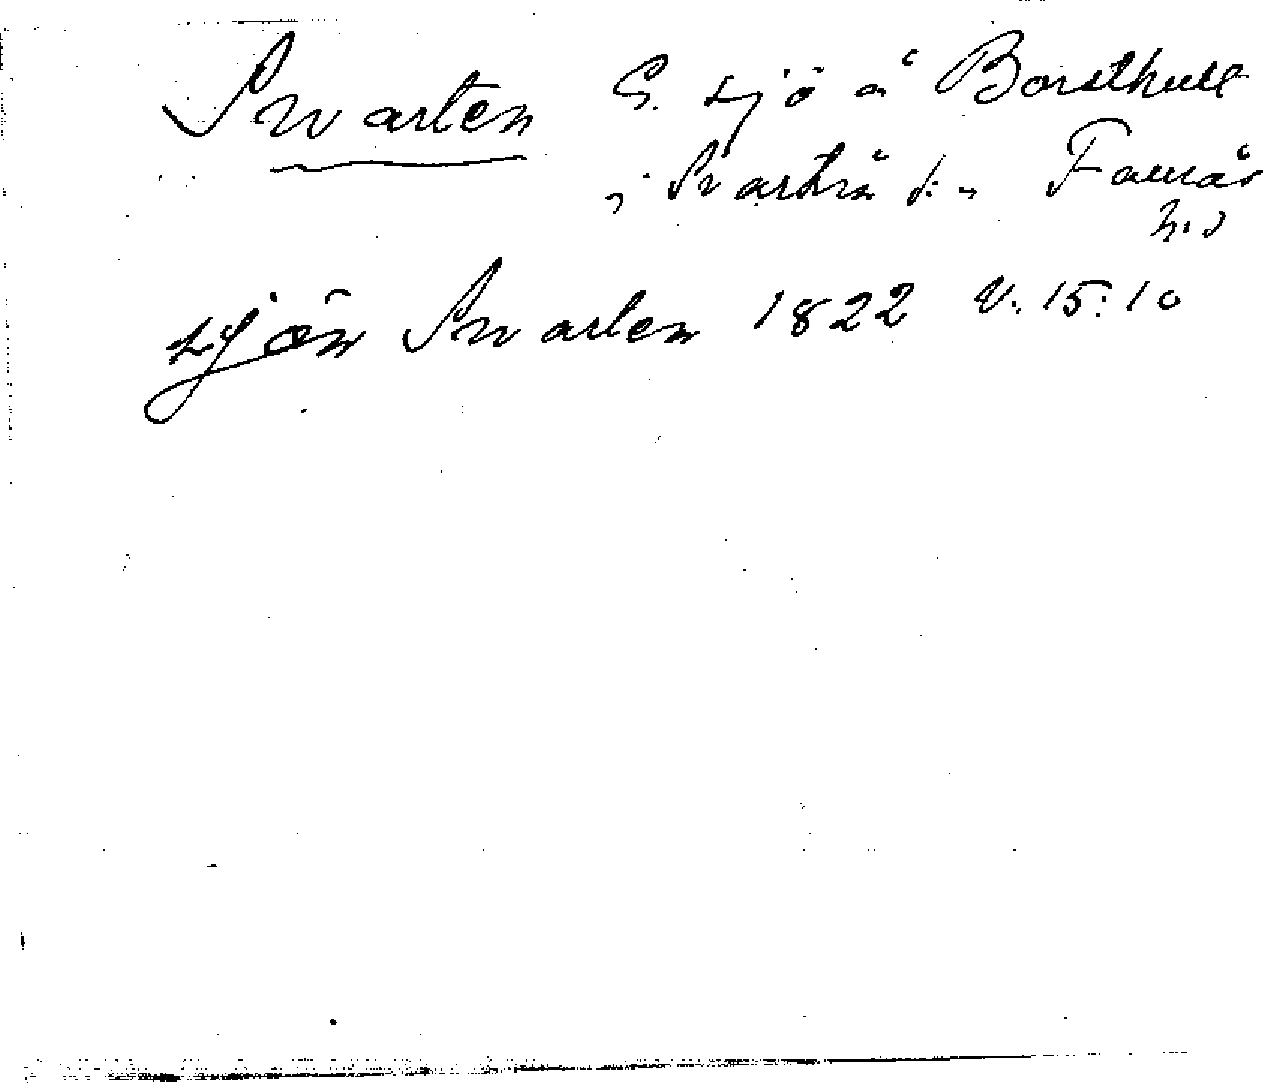 Swarten G. sjö å Borsthult
i Svartrå s:n Faurås
h:d
sjön Swarten 1822 V. 15:10